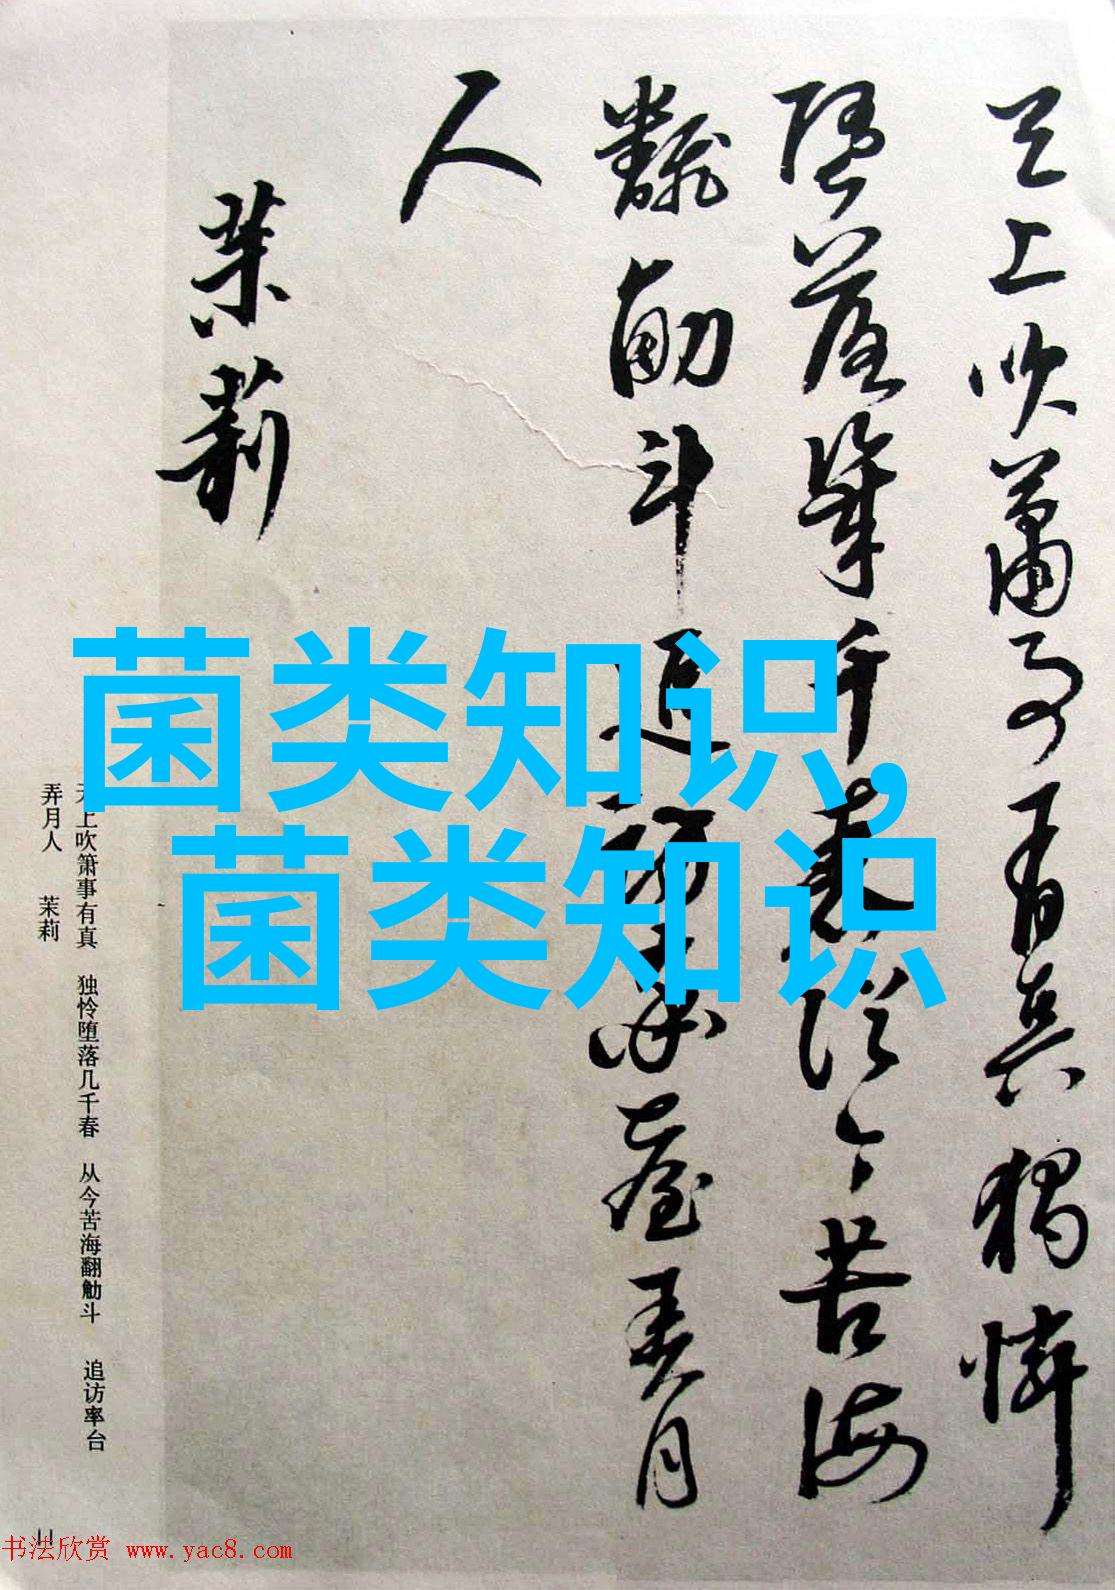 天上吹蕭事有真獨憐
墮落幾千春從今苦海
翻觔斗追訪率臺弄月
人
茉莉
菌类知识,
菌类知识
天上吹箫事有真 独怜堕落几千春 从今苦海翻觔斗 追访率台
弄月人 茉莉
11
书法欣赏 www.yac8.com